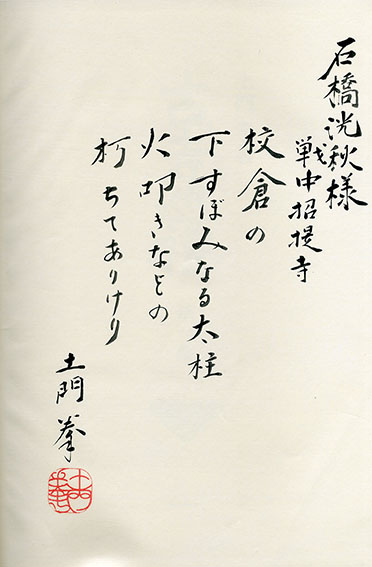 石橋洸秋様
戦中招提寺
校倉の
下すぼみなる太柱
火叩きなどの
朽ちてありけり
土門拳